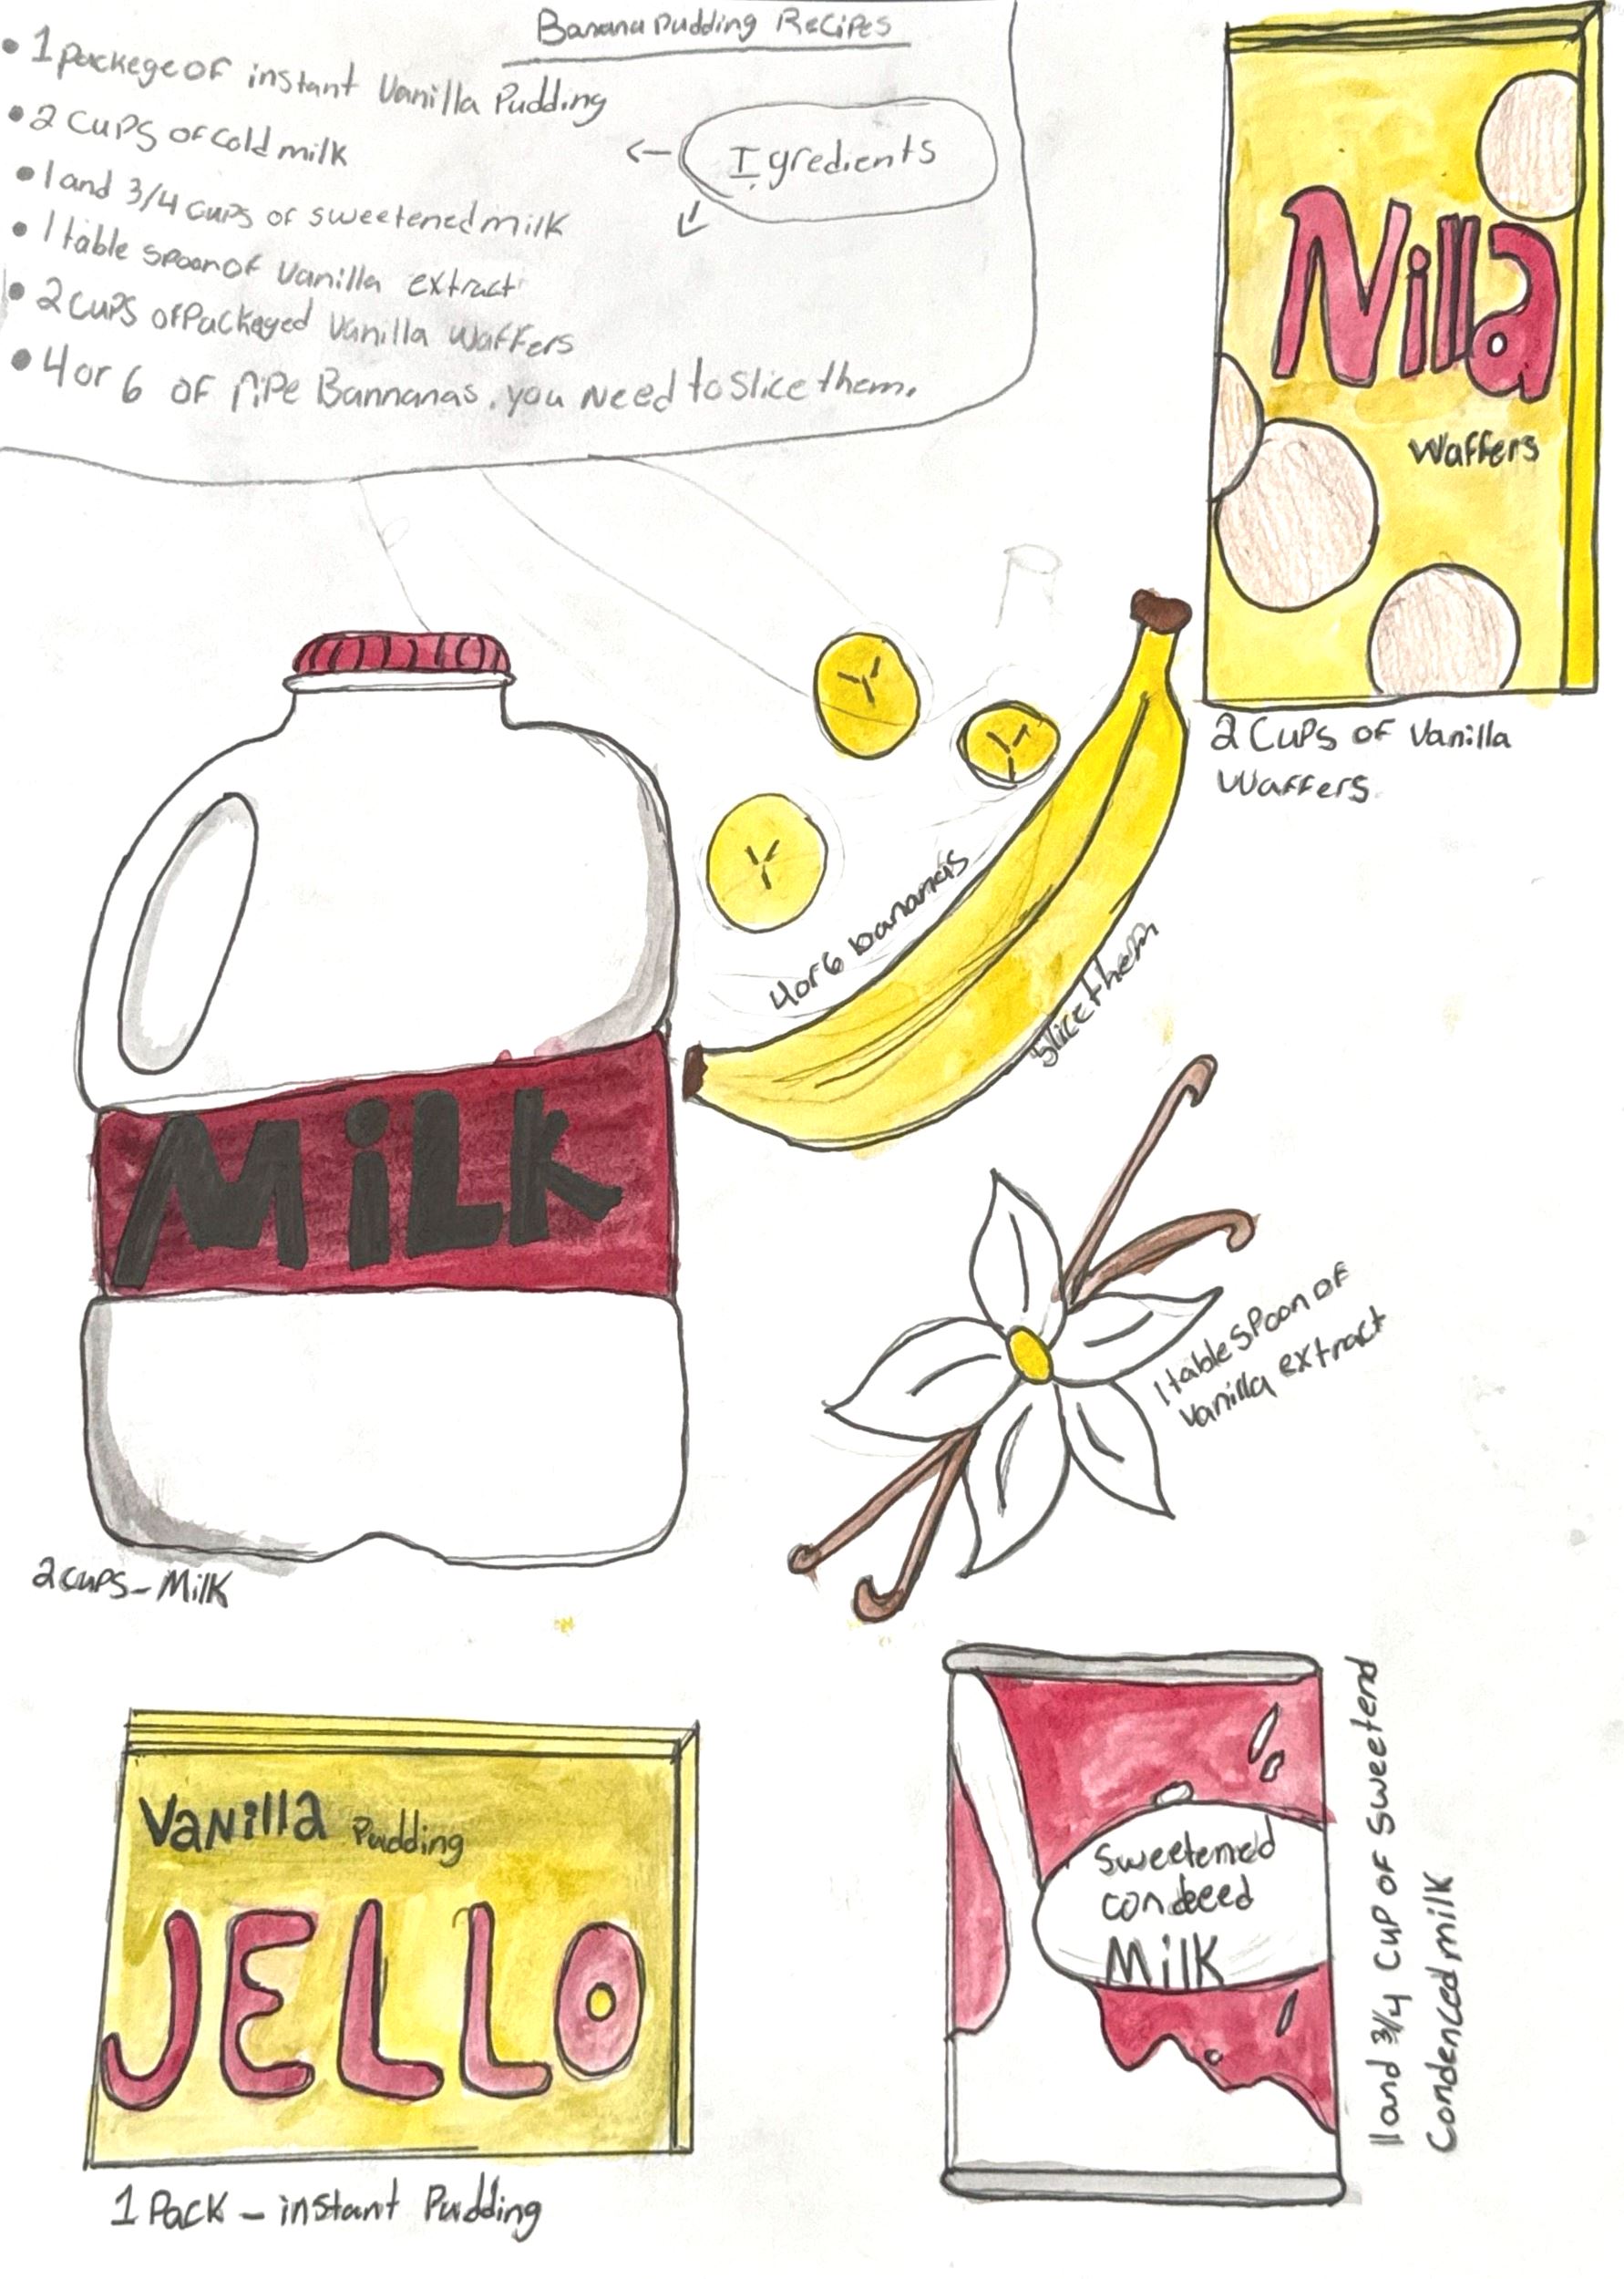 Banana Pudding Recipes
• 1 packege of instant Vanilla Pudding
• 2 cups of cold milk
• 1 and 3/4 cups of sweetened milk
• 1 table spoon of vanilla extract
• 2 cups of Packeged Vanilla Waffers
• 4 or 6 of ripe Bannanas. you need to slice them.
<- Igredients
Nilla
Waffers
2 Cups of Vanilla
Waffers.
4 or 6 bananas
slice them
Milk
2 cups - Milk
1 table spoon of
vanilla extract
Vanilla Pudding
JELLO
1 Pack - instant Pudding
Sweetened
condeed
Milk
1 and 3/4 cup of Sweetend
Condenced milk